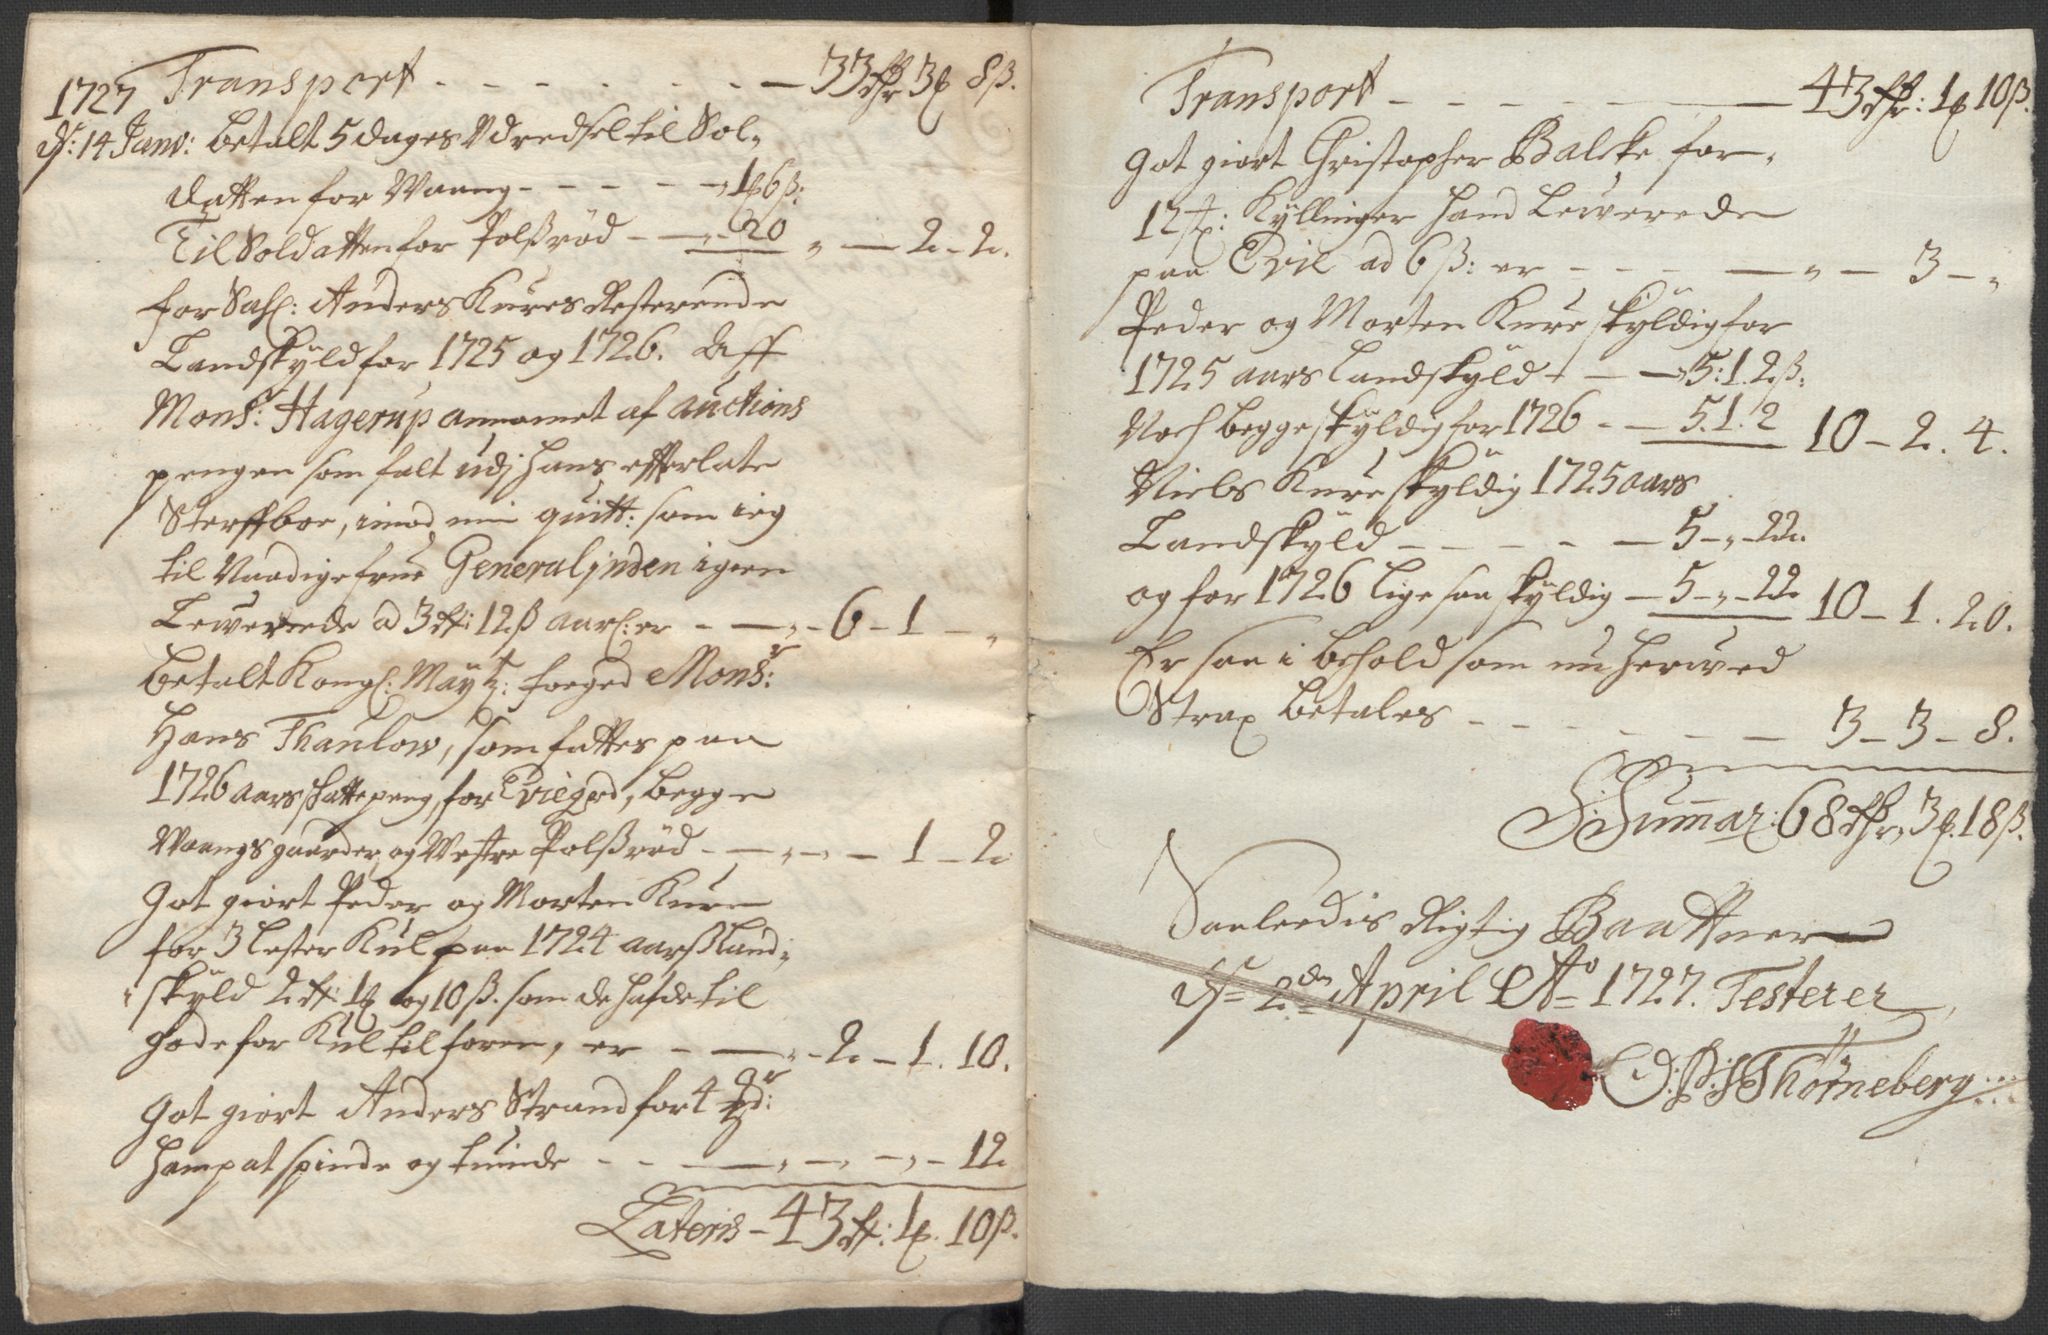 1727 Transport - - - - - - - 33 dhr 3 ₰ 8 ß.
d: 14 Janv: betalt 5 dages Udredsel til Sol-
datten for Waang - - - - - „ 1 ₰ 6 ß:
Til Soldatten for Polßrød - - „ 20 „ - 2 - 2.
for Sahl: Anders Kures Resterende
Landskyld for 1725 og 1726. Aff
Mons: Hagerup annamet af auctions
pengen som falt udj hans efterlate
Sterffboe, imod min quitt: som ieg
til Naadige frue Generalinden igien
Lewerede a 3 dr: 12 ß aarl: er - - „ - 6 - 1 - „
betalt Kongl: Maytz: foged Monsr:
Hans Thaulow, som fattes paa
1726 aars skatte peng, for Eviegrd, begge
Waangs gaarder, og Westre Polßrød - - „ - - 1 - 2
Got giort Peder og Morten Kure
for 3 Lester Kul paa 1724 aarß Land-
skyld 2 dr: 1 ₰ og 10 ß. som de hafde til
gode for Kul tilforne, er - - „ - 2 - 1. 10.
Got giort Anders Strand for 4
Hamp at spinde og tuinde - - - „ - „ - 12
Lateris - 43 dr: 1 ₰. 10 ß.
Transport - - - - - - 43 dhr: 1 ₰ 10 ß.
Got giort Christopher Balcke for
12 st: Kyllinger hand Lewerede
paa Evie ad 6 ß: er - - - - „ - 3 - „
Peder og Morten Kure skyldig for
1725 aars Landskyld - - „ 5: 1. 2 ß:
Noch begge skyldig for 1726 - - 5. 1. 2 10 - 2. 4.
Niels Kure skyldig 1725 aars
Landskyld - - - - - 5 - „ - 22.
og for 1726 lige saa skyldig - 5 - „ - 22 10 - 1. 20.
Er saa i behold som nu herwed
Strax betales - - - - - - 3 - 3 - 8.
S: Summar: 68 dhr, 3 ₰. 18 ß.
Saaleedis Rigtig
d 2den April Ao 1727. Testerer
Thorneberg